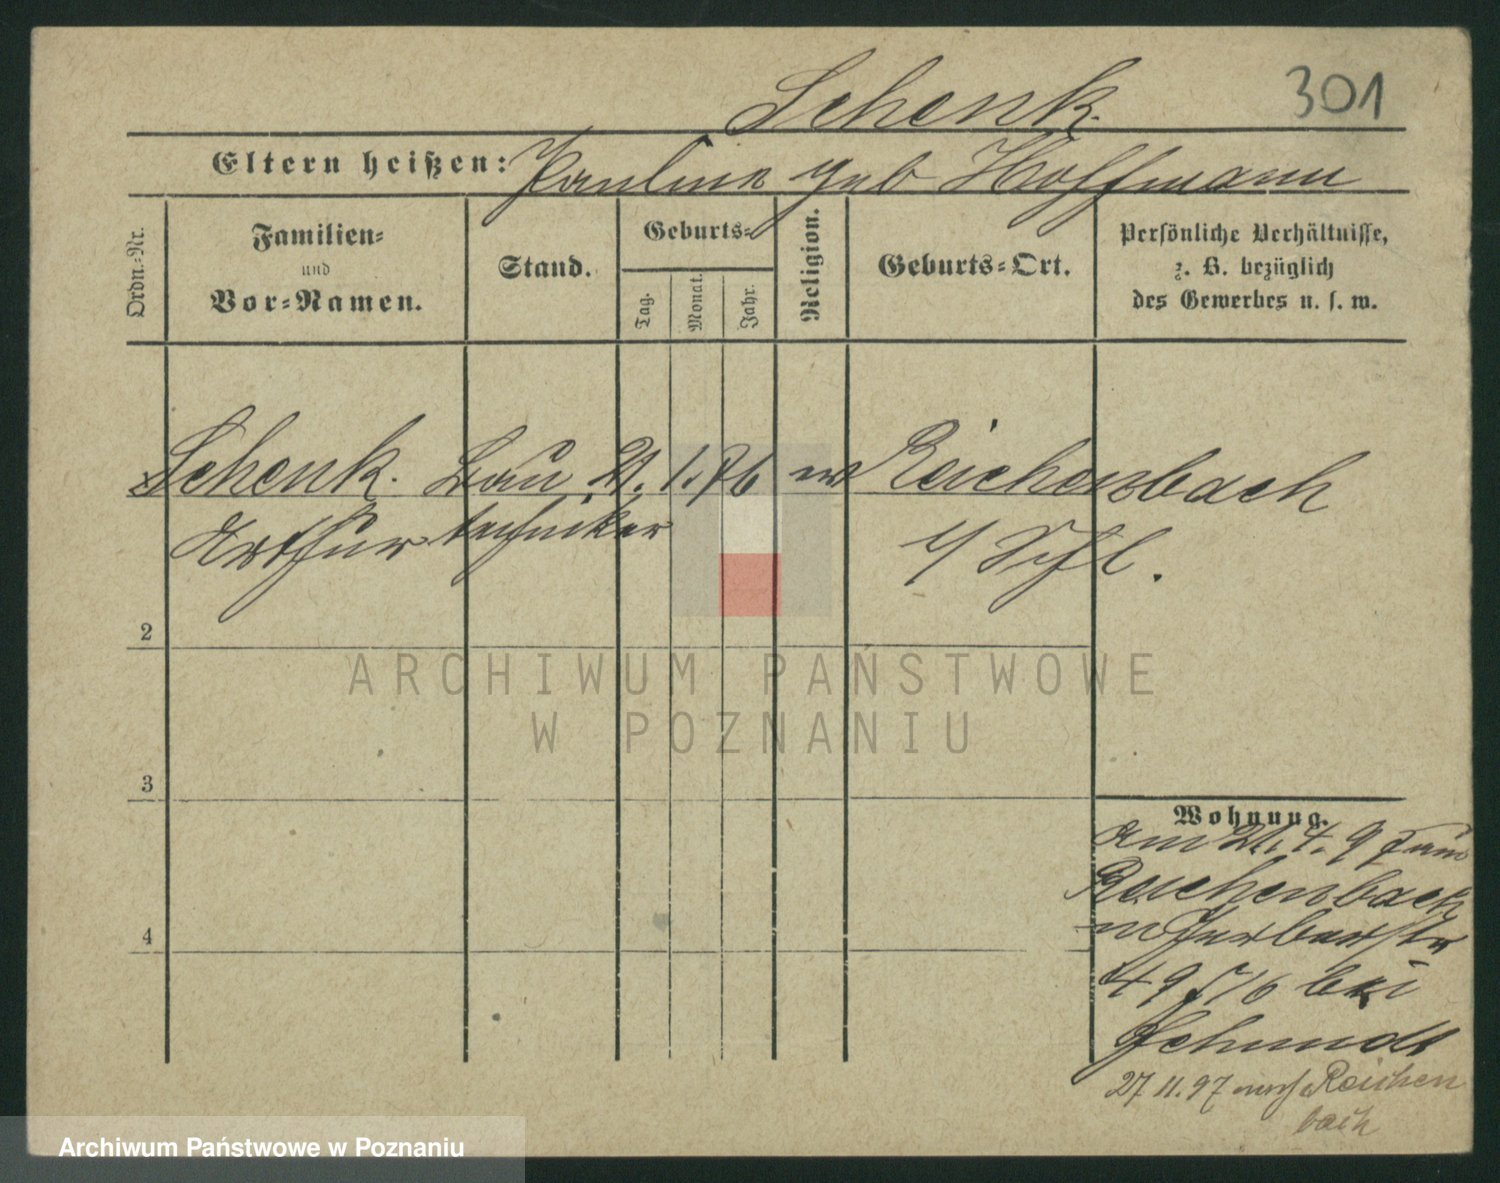 301
Schenk.
Eltern heißen: Pauline geb Hoffmann
Ordn.-Nr.
Familien-
und
Vor-Namen.
Stand.
Geburts-
Tag.
Monat.
Jahr.
Religion.
Geburts-Ort.
Persönliche Verhältnisse,
z. B. bezüglich
des Gewerbes u. s. w.
Schenk. Bau 21. 1. 76 ev Reichenbach
Arthur techniker
i/ Schl.
2
3
4
Wohnung.
am 21. 4. 97 von
Reichenbach
n Gerberstr
49 bei
Schmidt
27 11. 97 nach Reichen
bach
ARCHIWUM PAŃSTWOWE
W POZNANIU
Archiwum Państwowe w Poznaniu